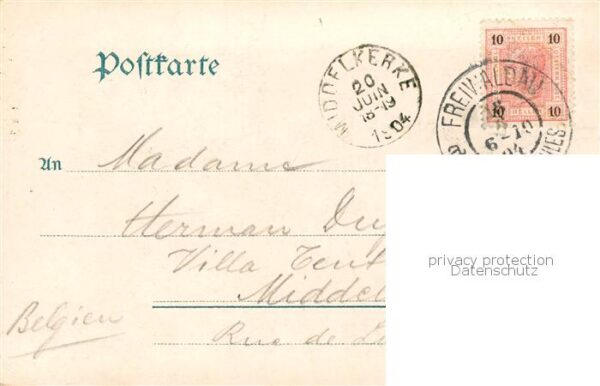 Postkarte
MIDDELKERKE
20
JUIN
18-19
1904
10 HELLER 10
10 10
FREIWALDAU
An
Madame
Herman
Villa
Middel
Rue de
Belgien
privacy protection
Datenschutz